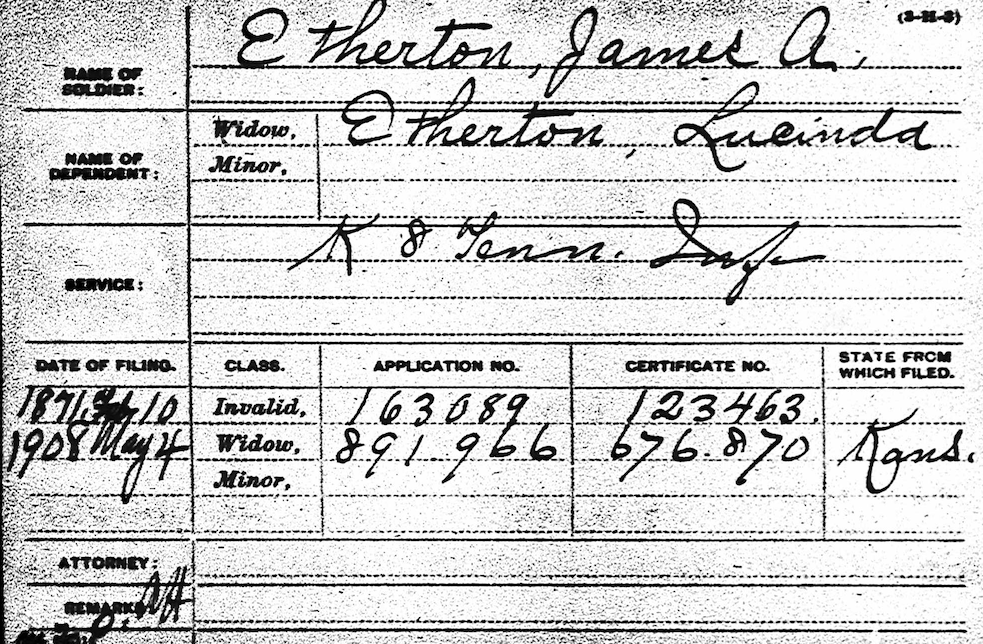 (3-H-3)
Etherton, James A.
NAME OF
SOLDIER:
Widow, Etherton, Lucinda
NAME OF
DEPENDENT:
Minor,
K 8 Tenn. Inf.
SERVICE:
DATE OF FILING. CLASS. APPLICATION NO. CERTIFICATE NO. STATE FROM
WHICH FILED.
1871, Feb 10 Invalid, 163089 123463.
1908 May 4 Widow, 891.966 676.870 Kans.
Minor,
ATTORNEY:
REMARKS: